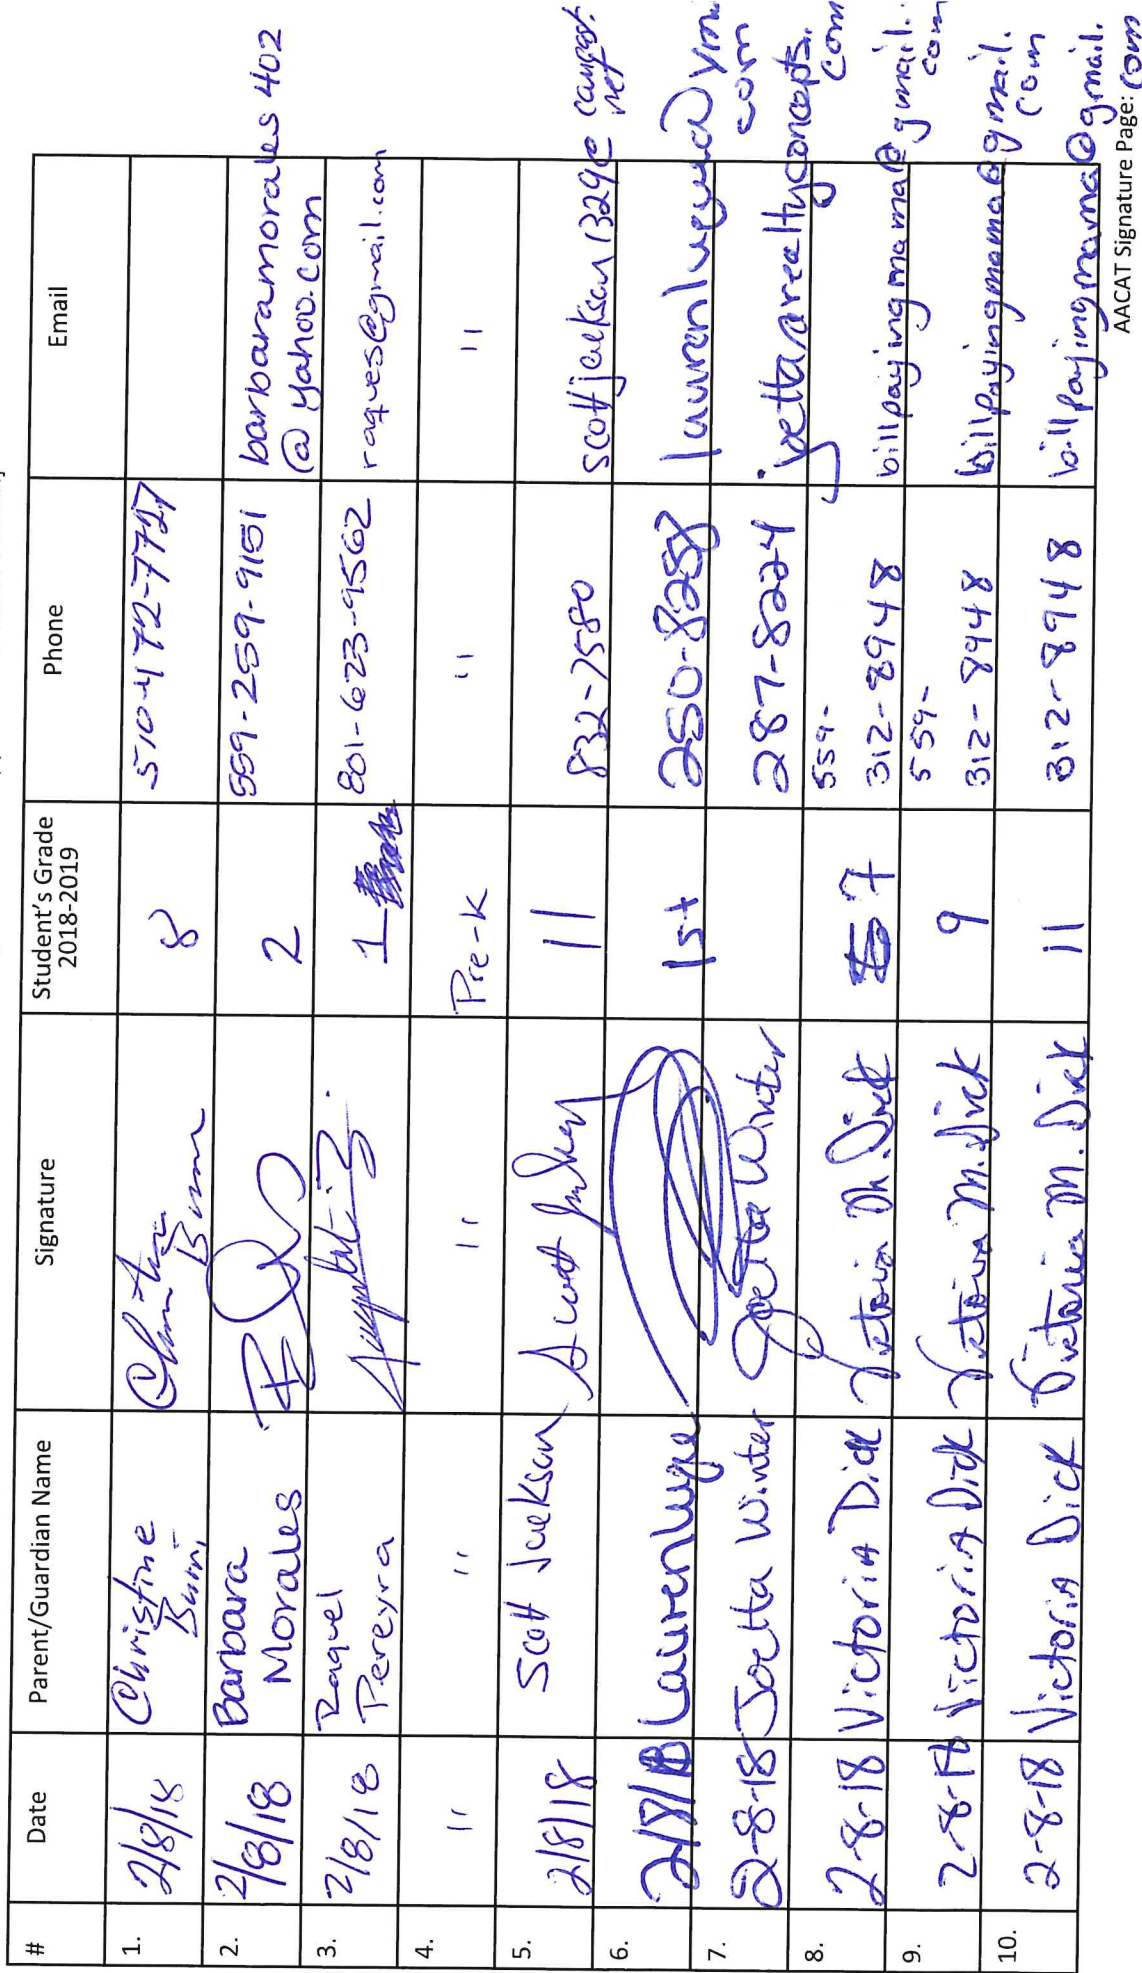 # Date Parent/Guardian Name Signature Student's Grade 2018-2019 Phone Email
1. 2/8/18 Christine 8 510-472-7727
2. 2/8/18 Barbara Morales 2 559-259-9151 barbaramorales402
@yahoo.com
3. 2/8/18 Raquel Pereyra 1 801-623-9562 raques@gmail.com
4. " " " Pre-K " "
5. 2/8/18 Scott Jackson Scott 11 832-7580 scottjackson1329@
6. 2/8/18 Lauren 1st 250-8258
7. 2-8-18 Joetta Winter Joetta Winter 287-8224 joettaarealtyconcepts.
com
8. 2-8-18 Victoria Dick Victoria M. Dick 7 559-
312-8948 billpayingmama@gmail.
com
9. 2-8-18 Victoria Dick Victoria M. Dick 9 559-
312-8948 billpayingmama@gmail.
com
10. 2-8-18 Victoria Dick Victoria M. Dick 11 312-8948 billpayingmama@gmail.
com
AACAT Signature Page: